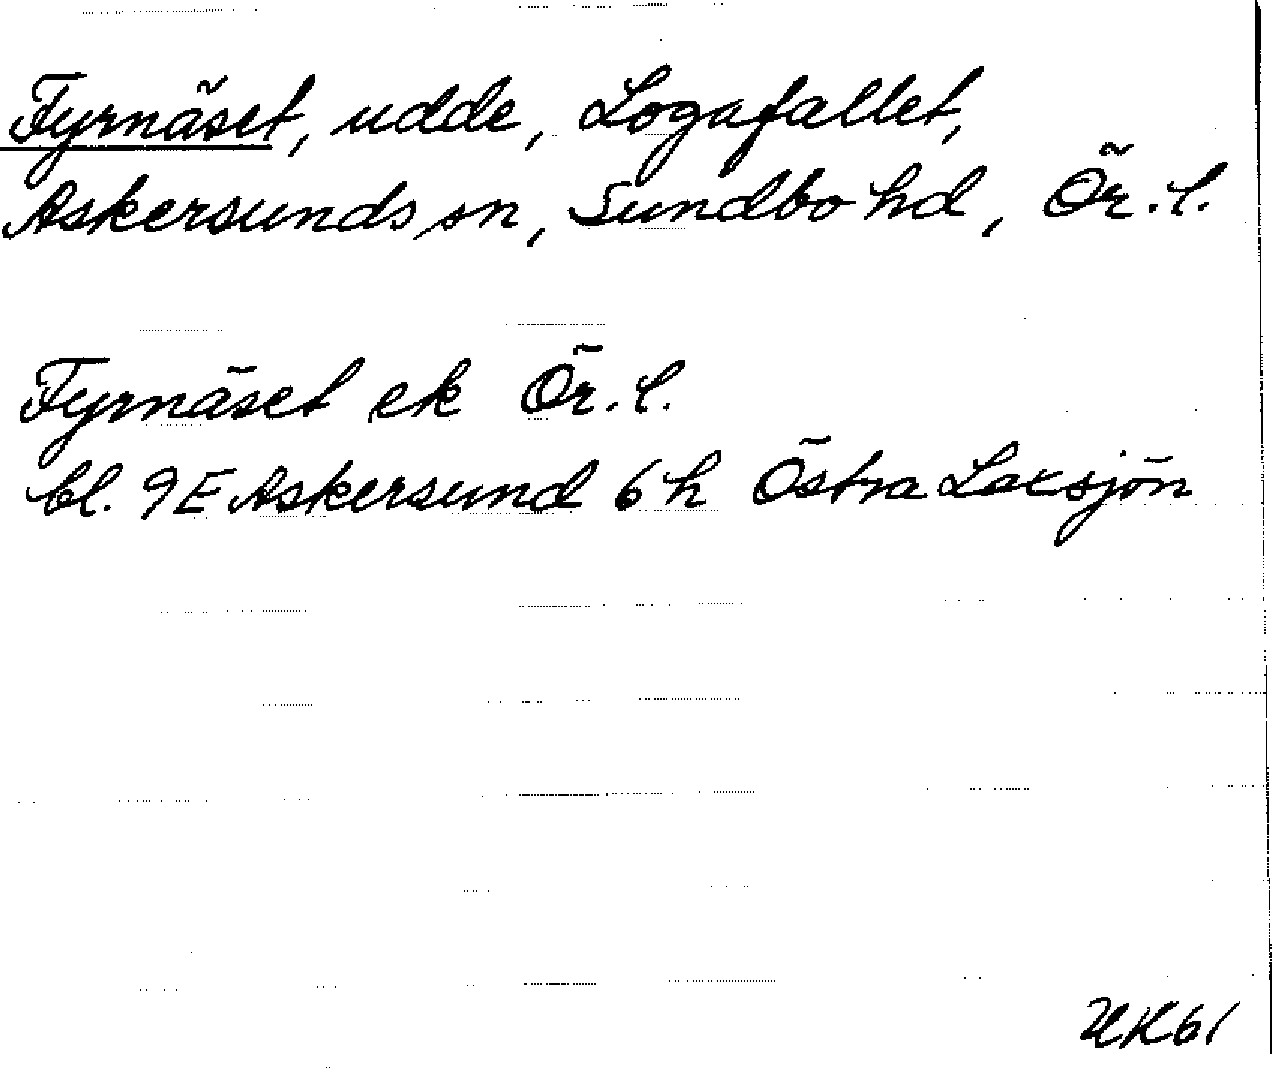 Fyrnäset, udde, Logafallet,
Askersunds sn, Sundbo hd, Ör. l.
Fyrnäset ek Ör. l.
bl. 9E Askersund 6h Östra Laxsjön
UK61